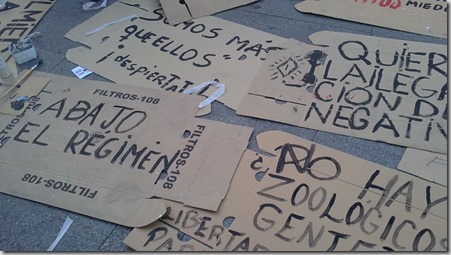 MIEDO
SOMOS MÁS
QUE ELLOS
¡despierta!
FILTROS-108
ABAJO
EL RÉGIMEN
FILTROS-108
FILTROS-108
QUIER
LA ILEGA
CION DE
NEGATIV
NO HAY
ZOOLÓGICOS
GENTE
LIBERTAD
PARA